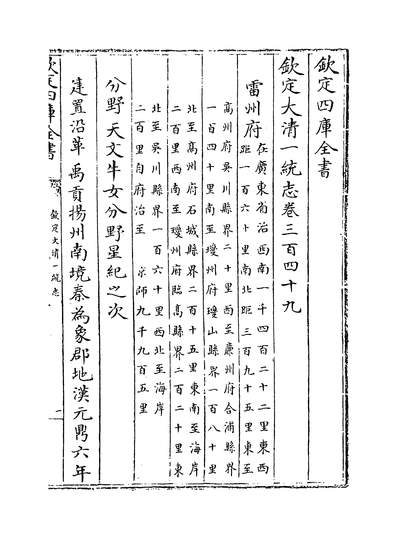 欽定四庫全書
欽定大清一統志卷三百四十九
雷州府
在廣東省治西南一千四百二十二里東西
距一百六十里南北距三百九十五里東至
高州府吳川縣界二十里西至廉州府合浦縣界
一百四十里南至瓊州府瓊山縣界一百八十里
北至高州府石城縣界二百十五里東南至海岸
二百里西南至瓊州府臨高縣界二百二十里東
北至吳川縣界一百六十里西北至海岸
二百里自府治至 京師九千九百五里
分野天文牛女分野星紀之次
建置沿革禹貢揚州南境秦為象郡地漢元鼎六年
欽定四庫全書
欽定大清一統志
一